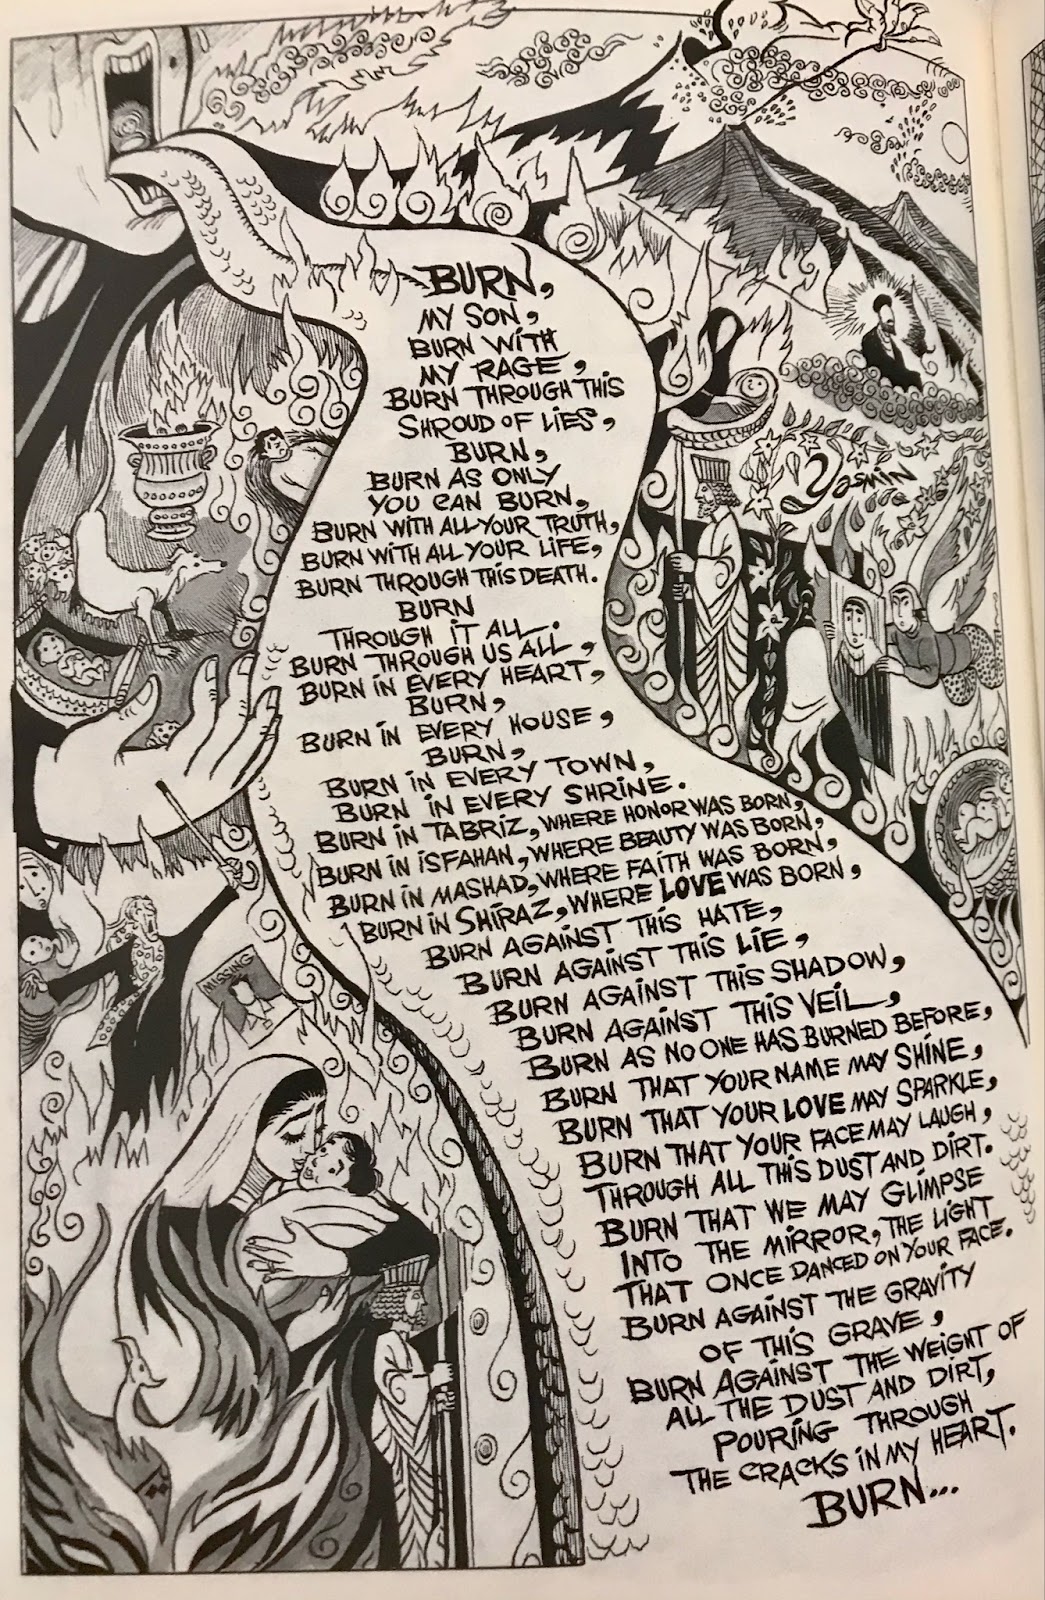 BURN,
MY SON,
BURN WITH
MY RAGE,
BURN THROUGH THIS
SHROUD OF LIES,
BURN,
BURN AS ONLY
YOU CAN BURN,
BURN WITH ALL YOUR TRUTH,
BURN WITH ALL YOUR LIFE,
BURN THROUGH THIS DEATH.
BURN
THROUGH IT ALL.
BURN THROUGH US ALL,
BURN IN EVERY HEART,
BURN,
BURN IN EVERY HOUSE,
BURN,
BURN IN EVERY TOWN,
BURN IN EVERY SHRINE.
BURN IN TABRIZ, WHERE HONOR WAS BORN,
BURN IN ISFAHAN, WHERE BEAUTY WAS BORN,
BURN IN MASHAD, WHERE FAITH WAS BORN,
BURN IN SHIRAZ, WHERE LOVE WAS BORN,
BURN AGAINST THIS HATE,
BURN AGAINST THIS LIE,
BURN AGAINST THIS SHADOW,
BURN AGAINST THIS VEIL,
BURN AS NO ONE HAS BURNED BEFORE,
BURN THAT YOUR NAME MAY SHINE,
BURN THAT YOUR LOVE MAY SPARKLE,
BURN THAT YOUR FACE MAY LAUGH,
THROUGH ALL THIS DUST AND DIRT.
BURN THAT WE MAY GLIMPSE
INTO THE MIRROR, THE LIGHT
THAT ONCE DANCED ON YOUR FACE.
BURN AGAINST THE GRAVITY
OF THIS GRAVE,
BURN AGAINST THE WEIGHT OF
ALL THE DUST AND DIRT,
POURING THROUGH
THE CRACKS IN MY HEART.
BURN...
Yasmin
MISSING